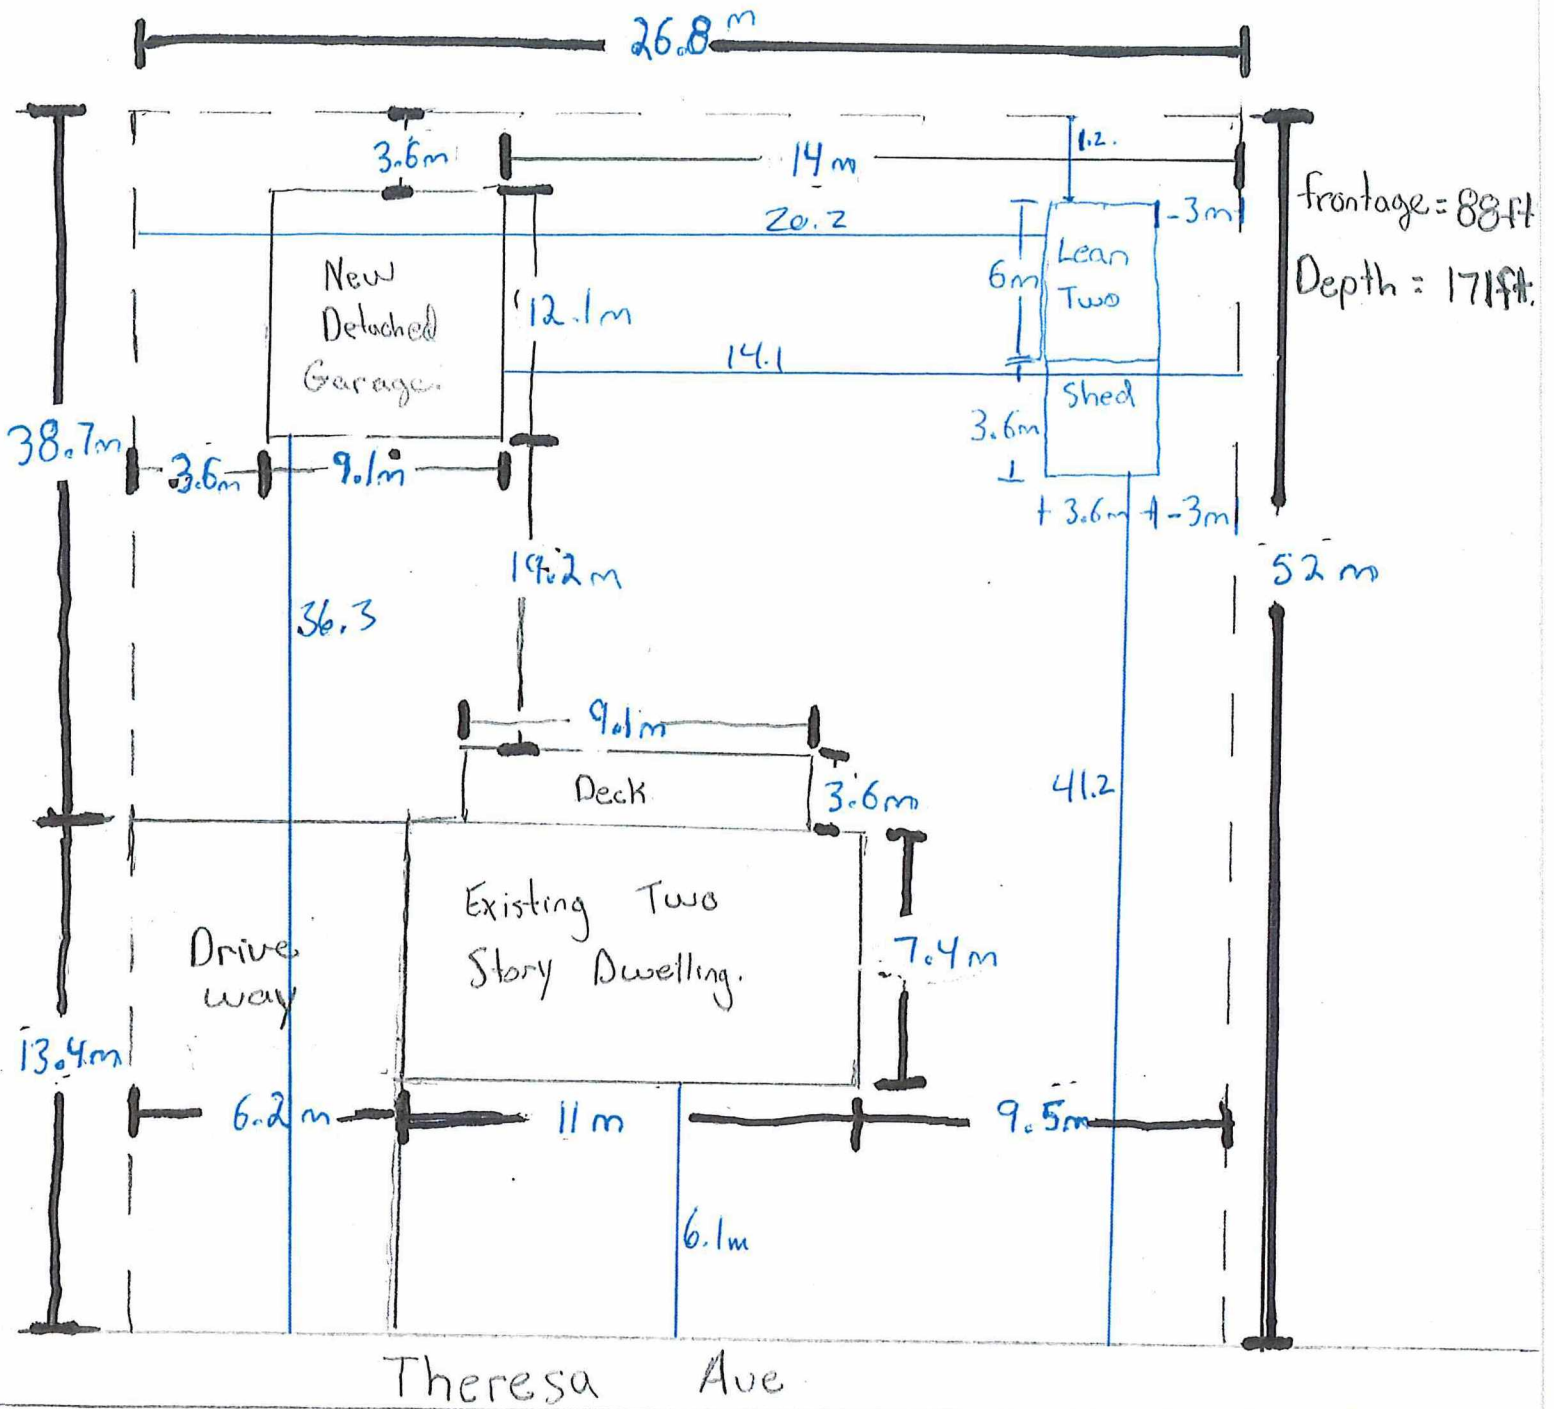 26.8 m
3.6m
14 m
1.2.
-3m
frontage = 88ft
20.2
Lean
Two
6m
New
Detached
Garage.
12.1m
Depth = 171ft.
14.1
Shed
3.6m
38.7m
3.6m
9.1m
3.6m
-3m
52 m
36.3
9.1m
Deck
3.6m
41.2
Existing Two
Story Dwelling.
7.4m
Drive
way
13.4m
6.2m
11m
9.5m
6.1m
Theresa Ave